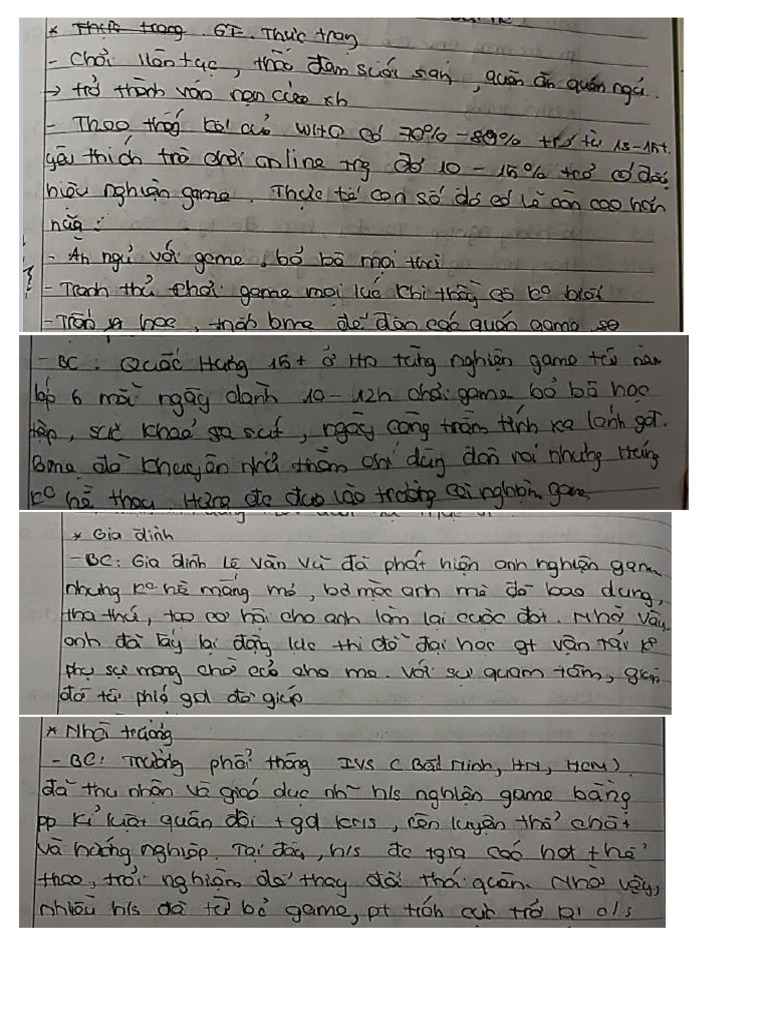 * Thực trạng GT. Thực trạng
- Chơi liên tục, thâu đêm suốt sáng, quên ăn quên ngủ.
→ trở thành vấn nạn của xh
- Theo thống kê của WHO có 70% - 80% trẻ từ 13-15t.
yêu thích trò chơi online trg đó 10 - 15% trẻ có dấu
hiệu nghiện game. Thực tế con số đó có lẽ còn cao hơn
nữa:
- Ăn ngủ với game, bỏ bê mọi thứ
- Tranh thủ chơi game mọi lúc khi thầy cô ko biết
- Trốn học, bme để đến các quán game
- BC: Quốc Hưng 15t ở HN từng nghiện game từ năm
lớp 6 mỗi ngày dành 10 - 12h chơi game bỏ bê học
tập, sức khoẻ sa sút, ngày càng trầm tính xa lánh gđ.
Bme đã khuyên nhủ thậm chí dùng đòn roi nhưng Hưng
ko hề thay. Hưng đc đưa vào trường cai nghiện game
* Gia đình
- BC: Gia đình Lê Văn Vũ đã phát hiện anh nghiện game
nhưng ko hề mắng mỏ, bỏ mặc anh mà đã bao dung,
tha thứ, tạo cơ hội cho anh làm lại cuộc đời. Nhờ vậy,
anh đã lấy lại động lực thi đỗ đại học gt vận tải ko
phụ sự mong chờ của cha mẹ. Với sự quan tâm, giúp
đỡ từ phía gđ đã giúp
* Nhà trường
- BC: Trường phổ thông IVS (Bắc Ninh, HN, HCM)
đã thu nhận và giáo dục nh~ h/s nghiện game bằng
pp kỉ luật quân đội + gd KNS, rèn luyện thể chất
và hướng nghiệp. Tại đây, h/s đc tgia các hđ thể
thao, trải nghiệm để thay đổi thói quen. Nhờ vậy,
nhiều h/s đã từ bỏ game, pt tích cực trở lại c/s